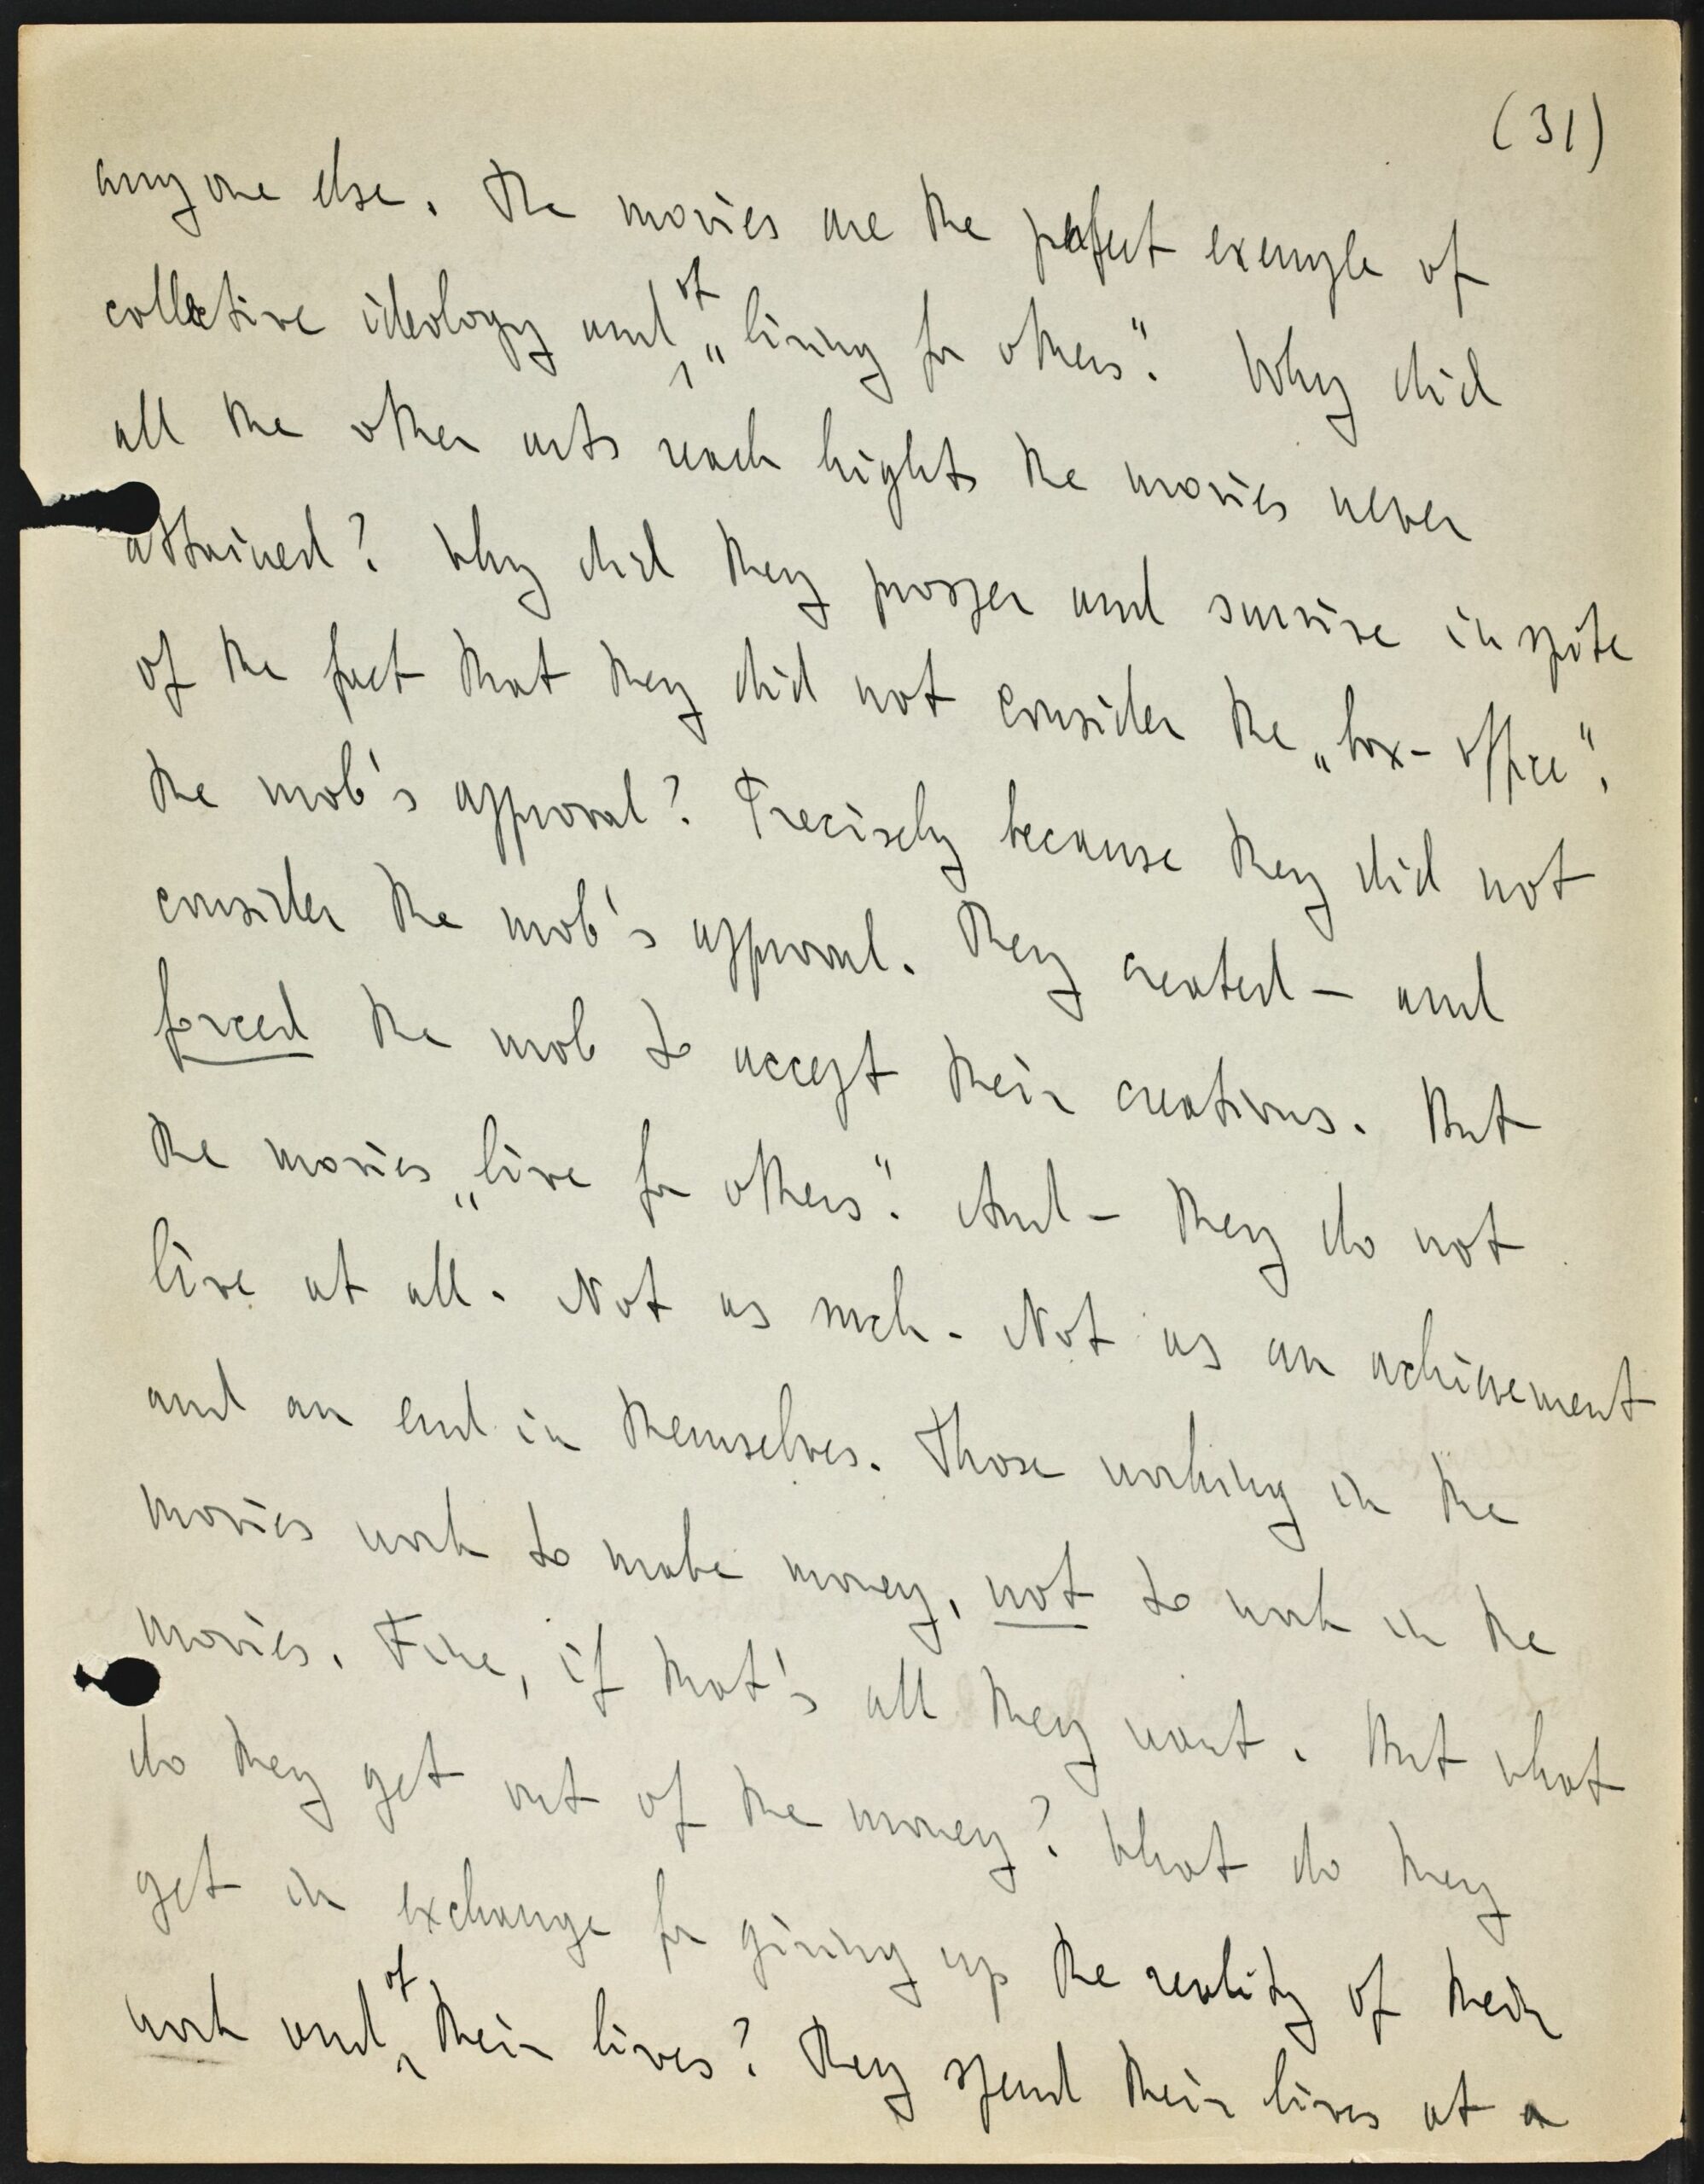 (31)
anyone else. The movies are the perfect example of
collective ideology and of „living for others". Why did
all the other arts reach hights the movies never
attained? Why did they prosper and survive in spite
of the fact that they did not consider the „box-office",
the mob's approval? Precisely because they did not
consider the mob's approval. They created — and
forced the mob to accept their creations. But
the movies „live for others". And — they do not
live at all. Not as such. Not as an achievement
and an end in themselves. Those working in the
movies work to make money, not to work in the
movies. Fine, if that's all they want. But what
do they get out of the money? What do they
get in exchange for giving up the reality of their
work and of their lives? They spend their lives at a